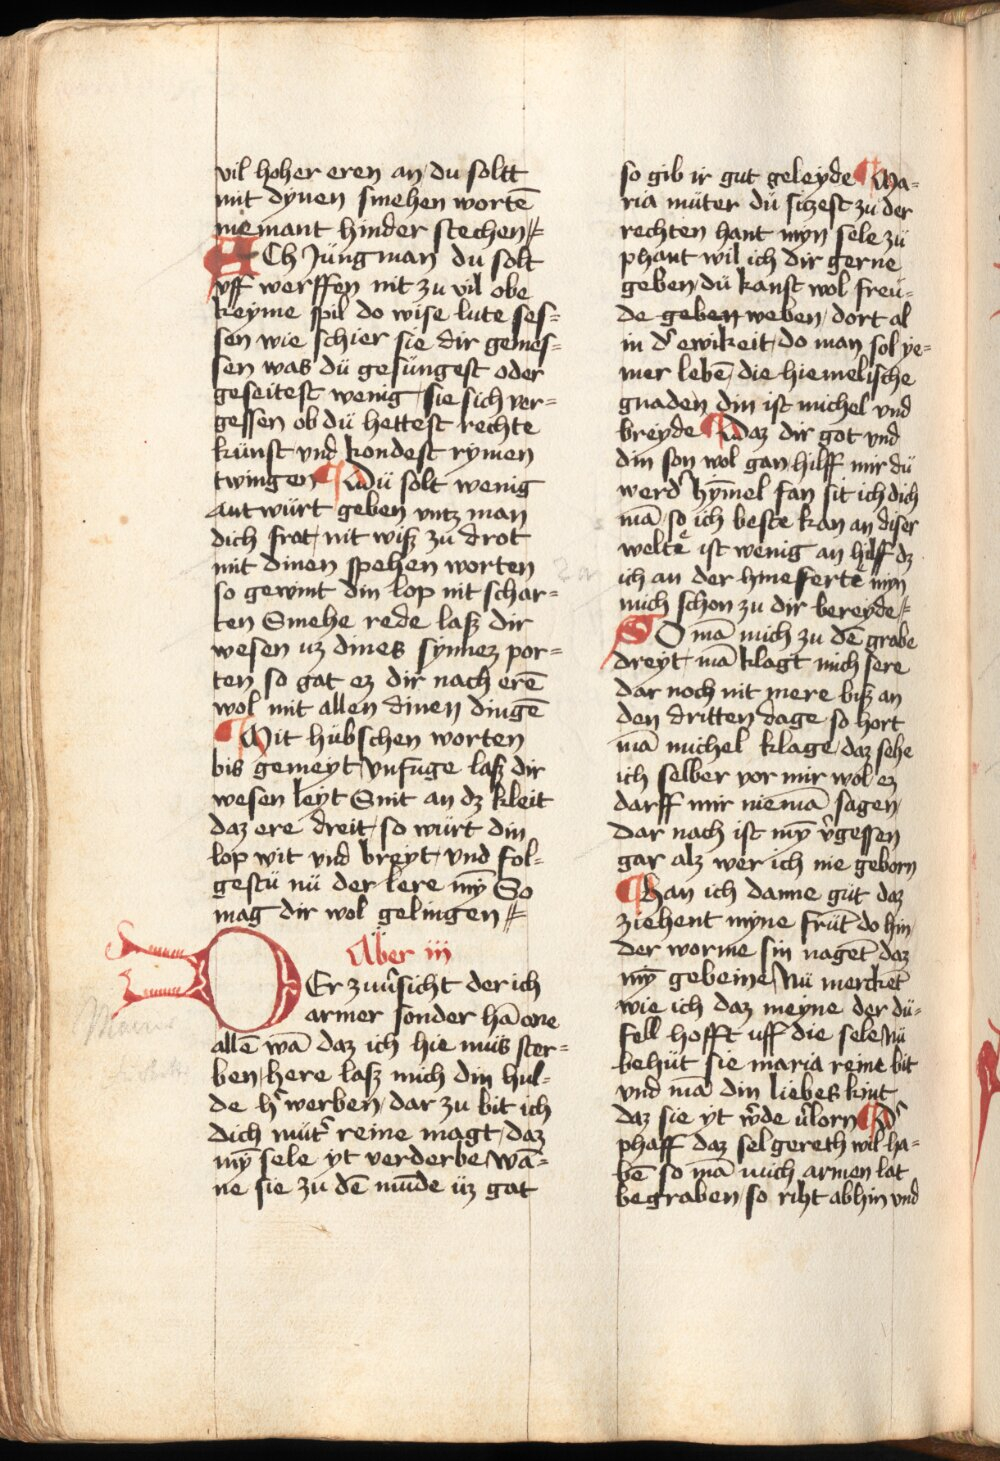 vil hoher eren an / du soltt
mit dynen smehen wortē
niemant hinder stechen //
ACh Jüngman du solt
vff werffen nit zu vil obe
keyme spil do wise lute ses=
sen wie schier sie dir gemes=
sen was dü gesüngest oder
geseitest wenig / sie sich ver=
gessen ob dü hettest rechte
künst / vnd kondest rymen
twingen Dü solt wenig
antwürt geben vntz man
dich frat / nit wiß zu drot
mit dinen spehen worten
so gewint din lop nit schar=
ten Smehe rede laß dir
wesen uz dines synnez por=
ten so gat ez dir nach erē
wol mit allen dinen dingē
Mit hübschen worten
bis gemeyt / vnfuge laß dir
wesen leyt Snit an dz kleit
daz ere dreit / so würt din
lop wit vnd breyt / vnd fol=
gestu nü der lere mȳ So
mag dir wol gelingen //
Aber iii
DEr zuu̓sicht der ich
armer sonder hā one
allē wā daz ich hie müs ster=
ben / here laß mich din hul=
de h̓ werben / dar zu bit ich
dich müt̓ reine magt / daz
mȳ sele yt verderbe / wā=
ne sie zu dē mūde üz gat
so gib ir gut geleyde Ma=
ria müter dü sitzest zu der
rechten hant myn sele zü
phant wil ich dir gerne
geben / dü kanst wol freü=
de geben weben / dort al
in d̓ ewikeit / do man sol ye=
mer lebē / die hiemelische
gnaden din ist michel vnd
breyde Daz dir got vnd
din son wol gan / hilff mir dü
werd̓ hȳmel fan sit ich dich
mā / so ich beste kan an diser
welte ist wenig an hilff dz
ich an der hinefertē myn
mich schon zu dir bereyde //
SO mā mich zu dē grabe
dreyt / mā klagt mich sere
dar noch nit mere biß an
den dritten dage so hort
mā michel klage / daz sehe
ich selber vor mir wol ez
darff mir niemā sagen /
Dar nach ist mȳ v̓gessen
gar alz wer ich nie geborn
Han ich danne güt daz
ziehent myne frūt do hin /
der worme sin nagēt daz
mȳ gebeine / Nü merckēt
wie ich daz meyne der dü=
fell hofft uff die sele Nü
behüt sie maria reine bit
vnd mā din liebes kint
daz sie yt w̓de v̓lorn D̓
phaff daz selgereth wil ha=
bē so mā mich armen lat
begraben / so riht ab hin vnd